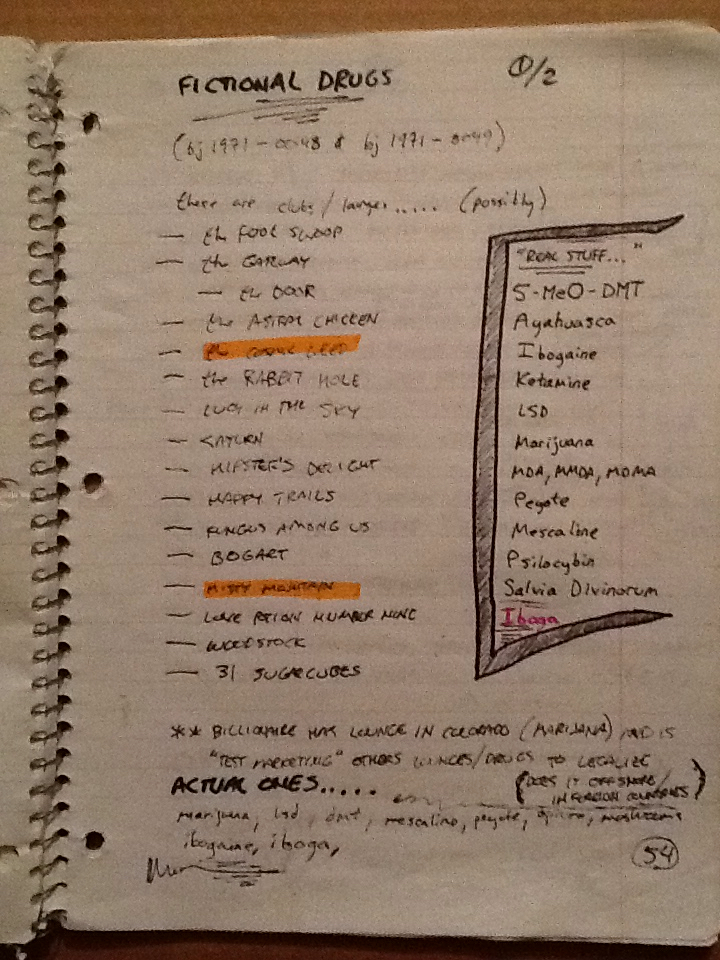 FICTIONAL DRUGS
1/2
(bj 1971 - 0048 & bj 1971 - 0049)
there are clubs/lounges..... (possibly)
— the FOOL SWOOP
— the
— the DOOR
— the ASTRAL CHICKEN
— the COSMIC
— the RABBIT HOLE
— LUCY IN THE SKY
— SATURN
— HIPSTER'S DELIGHT
— HAPPY TRAILS
— FUNGUS AMONG US
— BOGART
— MISTY MOUNTAIN
— LOVE POTION NUMBER NINE
— WOODSTOCK
— 31 SUGARCUBES
"REAL STUFF..."
5-MeO-DMT
Ayahuasca
Ibogaine
Ketamine
LSD
Marijuana
MDA, MMDA, MDMA
Peyote
Mescaline
Psilocybin
Salvia Divinorum
Iboga
** BILLIONAIRE HAS LOUNGE IN COLORADO (MARIJUANA) AND IS
"TEST MARKETING" OTHERS LOUNGES/DRUGS TO LEGALIZE
(DOES IT OFFSHORE/
IN FOREIGN COUNTRIES)
ACTUAL ONES.....
marijuana, lsd, dmt, mescaline, peyote, opium, mushrooms
ibogaine, iboga,
54